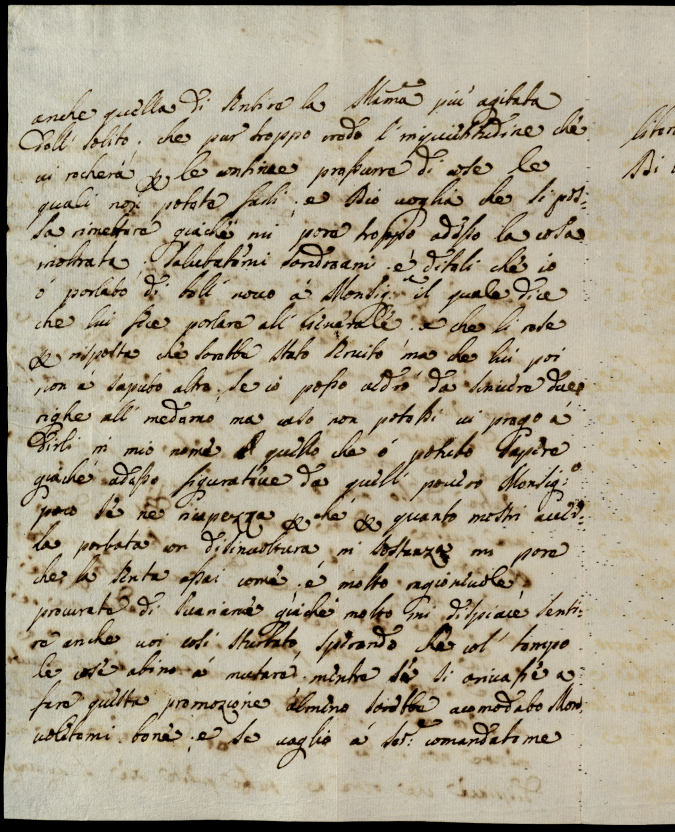 anche quella di sentire la Mamã più agitata
dell solito, che pur troppo credo l'inquietitudine che
vi recherà & le continue prossurre di cose le
quali non potete farli, e Dio voglia che si pos-
sa rimettere giache mi pare troppo adesso la cosa
inoltrata. Salutatemi e ditoli che io
ó parlato di bell novo á Monsig.re il quale dice
che lui fece parlare all Generalle. e che li rese
& risposta che sarebbe stato servito ma che lui poi
non a saputo altro, se io posso vedrò da scrivere due
righe all medemo ma caso non potessi vi prego à
dirli in mio nome quello che ó potuto sapere
giaché adesso figurative da quell povero Monsig.e
poco se ne ricapezza & ché & quanto mostri aver-
la portata con disinvoltura in sostanza mi pare
che la senta assai come é molto ragionevole
procurate di suariarve giaché molto mi dispiace senti-
re anche voi così sturbato sperando che col tempo
le cose abino á mutare mentre se si arivasse a
fare questa promozione almeno sarebbe acomodato
voletemi bene e se vaglio á ser: comandatome
liber
Di